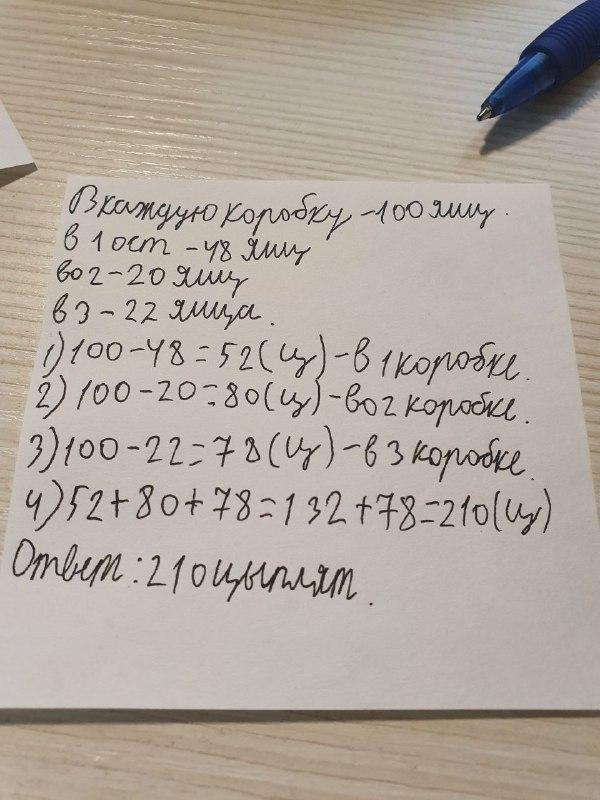 В каждую коробку - 100 яиц.
в 1 ост - 48 яиц
во 2 - 20 яиц
в 3 - 22 яица.
1) 100 - 48 = 52 (ц) - в 1 коробке.
2) 100 - 20 = 80 (ц) - во 2 коробке.
3) 100 - 22 = 78 (ц) - в 3 коробке.
4) 52 + 80 + 78 = 132 + 78 = 210 (ц)
Ответ: 210 цыплят.